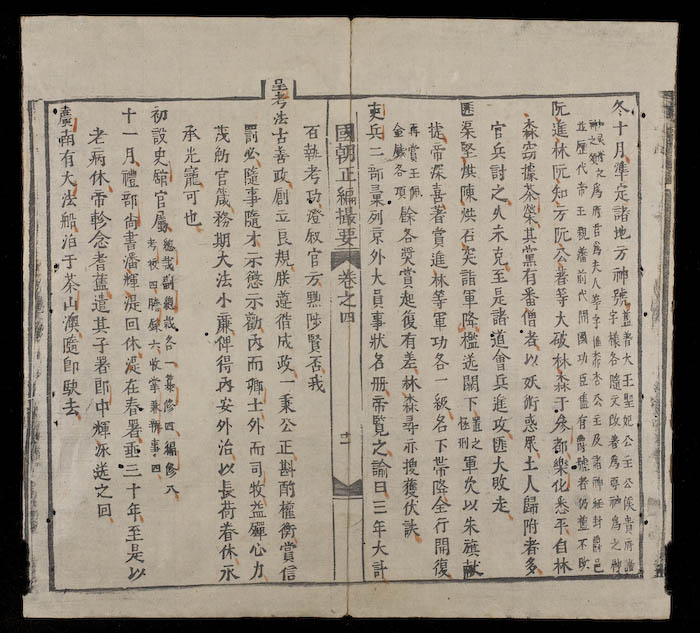 冬十月準定諸地方神號
舊著大王聖妃公主公侯者府
字樣各隨文改著爲尊神爲之神
並歷代帝王親藩前代開國功臣舊有爵號者仍舊不改
阮進林阮知方阮公著等大破林森于參都樂化悉平自林
森竊據茶榮其黨有番僧者以妖術惑眾土人歸附者多
官兵討之久未克至是諸道會兵進攻匪大敗走
匪渠堅烘陳烘石奕詣軍降檻送闕下置之極刑軍次以朱旗獻
捷帝深喜著賞進林等軍功各一級名下帶降全行開復
再賞玉珮金錢各項餘各獎賞起復有差林森尋亦搜獲伏誅
吏兵二部彙列京外大員事狀名册帝覽之諭曰三年大計
國朝正編撮要 卷之四 十二
百執考功澄叙官方黜陟賢否我
皇考法古善政創立良規朕遵循成政一秉公正斟酌權衡賞信
罰必隨事隨才示懲示勸內而卿士外而司牧益殫心力
茂飭官箴務期大法小廉俾得內安外治以長荷眷休永
承光寵可也
初設史舘官屬總裁副總裁各一纂修四編修八考校四謄錄六收掌兼辦事四
十一月禮部尚書潘輝湜回休湜在春署垂三十年至是以
老病休帝軫念耆舊遣其子署郎中輝泳送之回
廣南有大法船泊于茶山澳隨即駛去